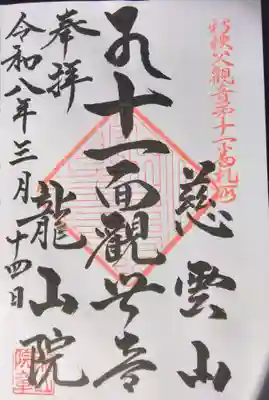 秩父觀音第十一番札所
慈雲山
十一面觀世音
龍山院
奉拝
令和八年三月十四日